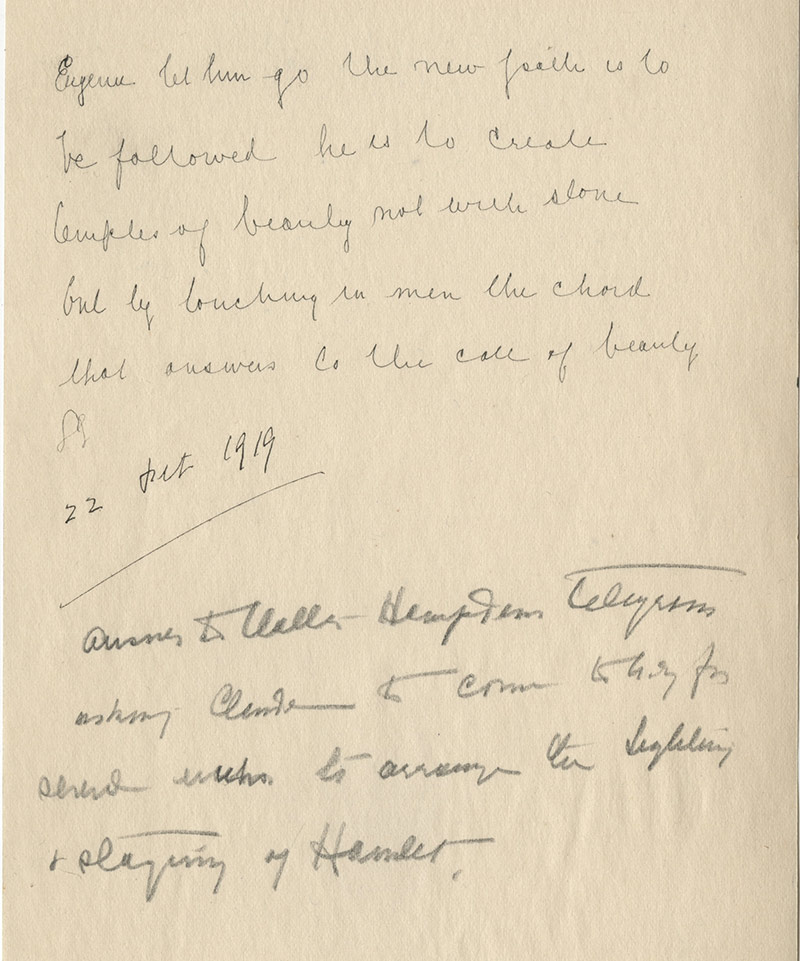 Eugenia let him go the new path is to
be followed he is to create
temples of beauty not with stone
but by touching in men the chord
that answers to the call of beauty
22 1919
Answer to Walter Hampdens Telegram
asking Claude to come to N.Y. for
several weeks to arrange the lighting
& staging of Hamlet.